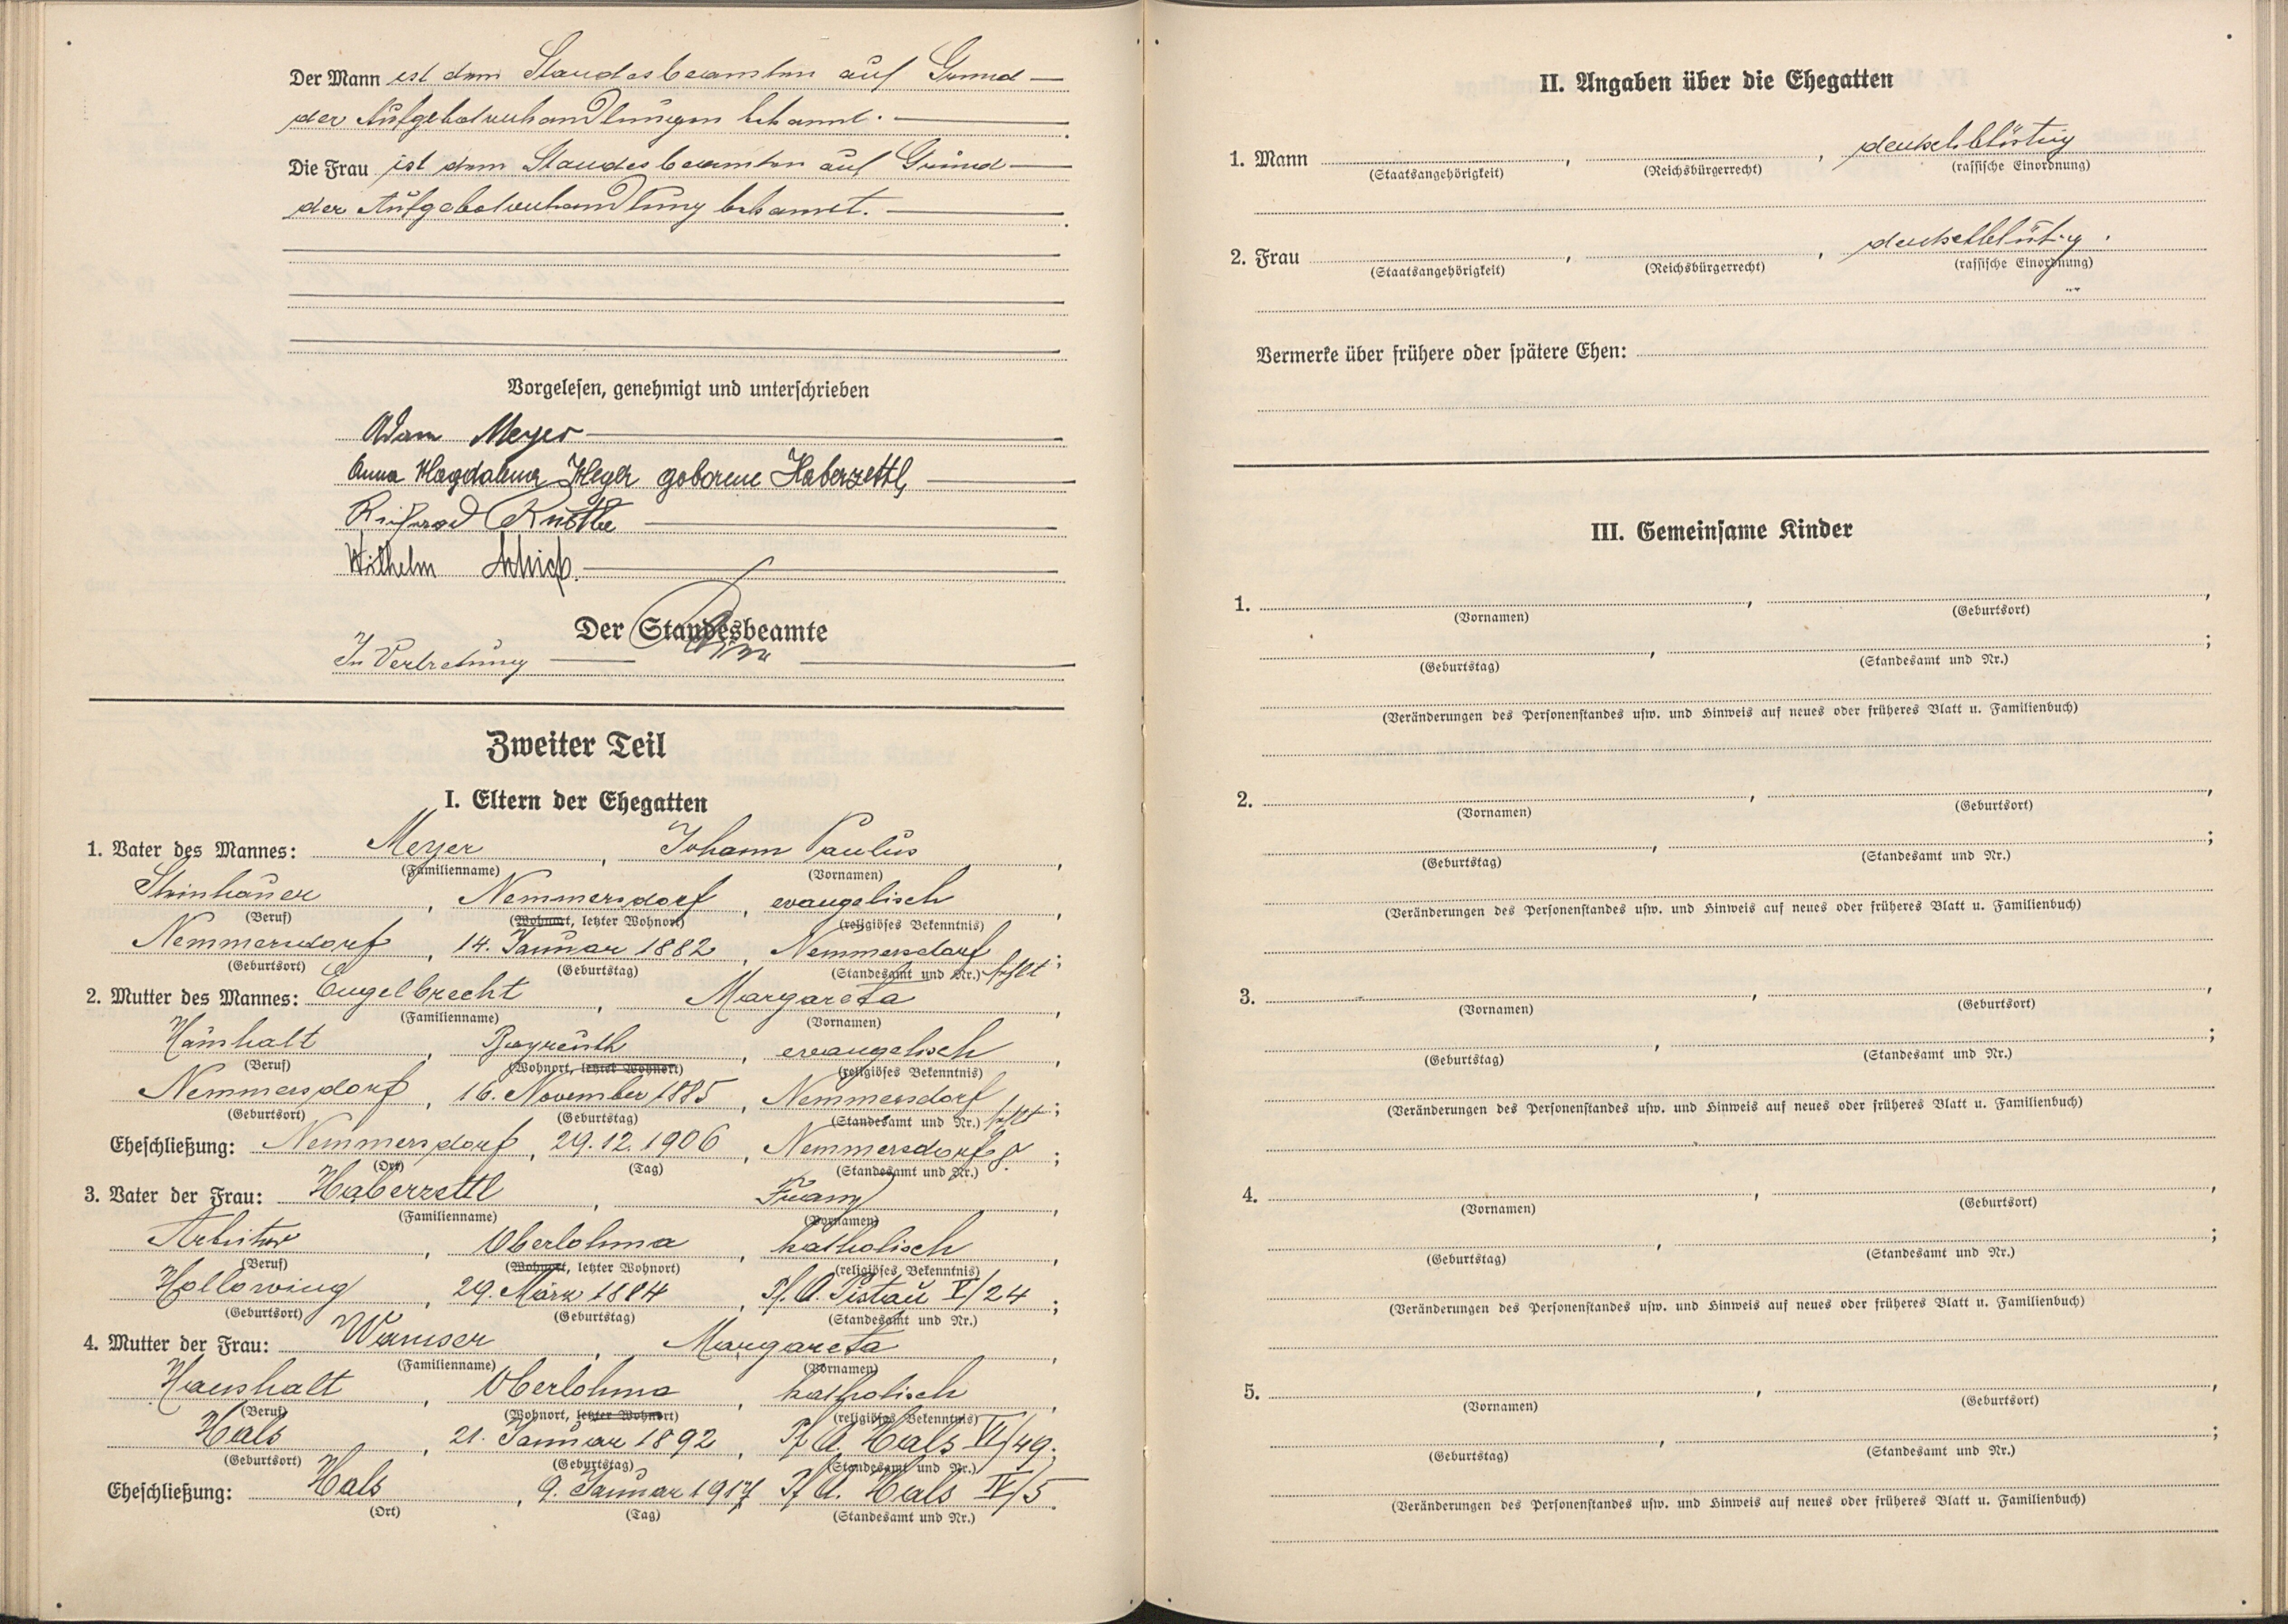 Der Mann ist dem Standesbeamten auf Grund
der Aufgebotverhandlungen bekannt.
Die Frau ist dem Standesbeamten auf Grund
der Aufgebotverhandlung bekannt.
Vorgelesen, genehmigt und unterschrieben
Adam Meyer
Anna Magdalena Meyer geborene Haberzettl
Richard
Wilhelm
Der Standesbeamte
In Vertretung
Zweiter Teil
I. Eltern der Ehegatten
1. Vater des Mannes: Meyer, Johann Paulus,
(Familienname) (Vornamen)
Steinhauer, Nemmersdorf, evangelisch,
(Beruf) (Wohnort, letzter Wohnort) (religiöses Bekenntnis)
Nemmersdorf, 14. Januar 1882, Nemmersdorf fehlt;
(Geburtsort) (Geburtstag) (Standesamt und Nr.)
2. Mutter des Mannes: Engelbrecht, Margareta,
(Familienname) (Vornamen)
Haushalt, Bayreuth, evangelisch,
(Beruf) (Wohnort, letzter Wohnort) (religiöses Bekenntnis)
Nemmersdorf, 16. November 1885, Nemmersdorf fehlt;
(Geburtsort) (Geburtstag) (Standesamt und Nr.)
Eheschließung: Nemmersdorf, 29.12.1906, Nemmersdorf 8.;
(Ort) (Tag) (Standesamt und Nr.)
3. Vater der Frau: Haberzettl, Franz,
(Familienname) (Vornamen)
Arbeiter, Oberlohma, katholisch,
(Beruf) (Wohnort, letzter Wohnort) (religiöses Bekenntnis)
Hollowing, 29. März 1884, Pf. A. Pistau V/24;
(Geburtsort) (Geburtstag) (Standesamt und Nr.)
4. Mutter der Frau: Wamser, Margareta,
(Familienname) (Vornamen)
Haushalt, Oberlohma, katholisch,
(Beruf) (Wohnort, letzter Wohnort) (religiöses Bekenntnis)
Hals, 21. Januar 1892, Pf. A. Hals VI/49;
(Geburtsort) (Geburtstag) (Standesamt und Nr.)
Eheschließung: Hals, 9. Januar 1917, Pf. A. Hals IV/5.
(Ort) (Tag) (Standesamt und Nr.)
II. Angaben über die Ehegatten
1. Mann , , deutschblütig
(Staatsangehörigkeit) (Reichsbürgerrecht) (rassische Einordnung)
2. Frau , , deutschblütig.
(Staatsangehörigkeit) (Reichsbürgerrecht) (rassische Einordnung)
Vermerke über frühere oder spätere Ehen:
III. Gemeinsame Kinder
1. , ,
(Vornamen) (Geburtsort)
, ;
(Geburtstag) (Standesamt und Nr.)
(Veränderungen des Personenstandes usw. und Hinweis auf neues oder früheres Blatt u. Familienbuch)
2. , ,
(Vornamen) (Geburtsort)
, ;
(Geburtstag) (Standesamt und Nr.)
(Veränderungen des Personenstandes usw. und Hinweis auf neues oder früheres Blatt u. Familienbuch)
3. , ,
(Vornamen) (Geburtsort)
, ;
(Geburtstag) (Standesamt und Nr.)
(Veränderungen des Personenstandes usw. und Hinweis auf neues oder früheres Blatt u. Familienbuch)
4. , ,
(Vornamen) (Geburtsort)
, ;
(Geburtstag) (Standesamt und Nr.)
(Veränderungen des Personenstandes usw. und Hinweis auf neues oder früheres Blatt u. Familienbuch)
5. , ,
(Vornamen) (Geburtsort)
, ;
(Geburtstag) (Standesamt und Nr.)
(Veränderungen des Personenstandes usw. und Hinweis auf neues oder früheres Blatt u. Familienbuch)